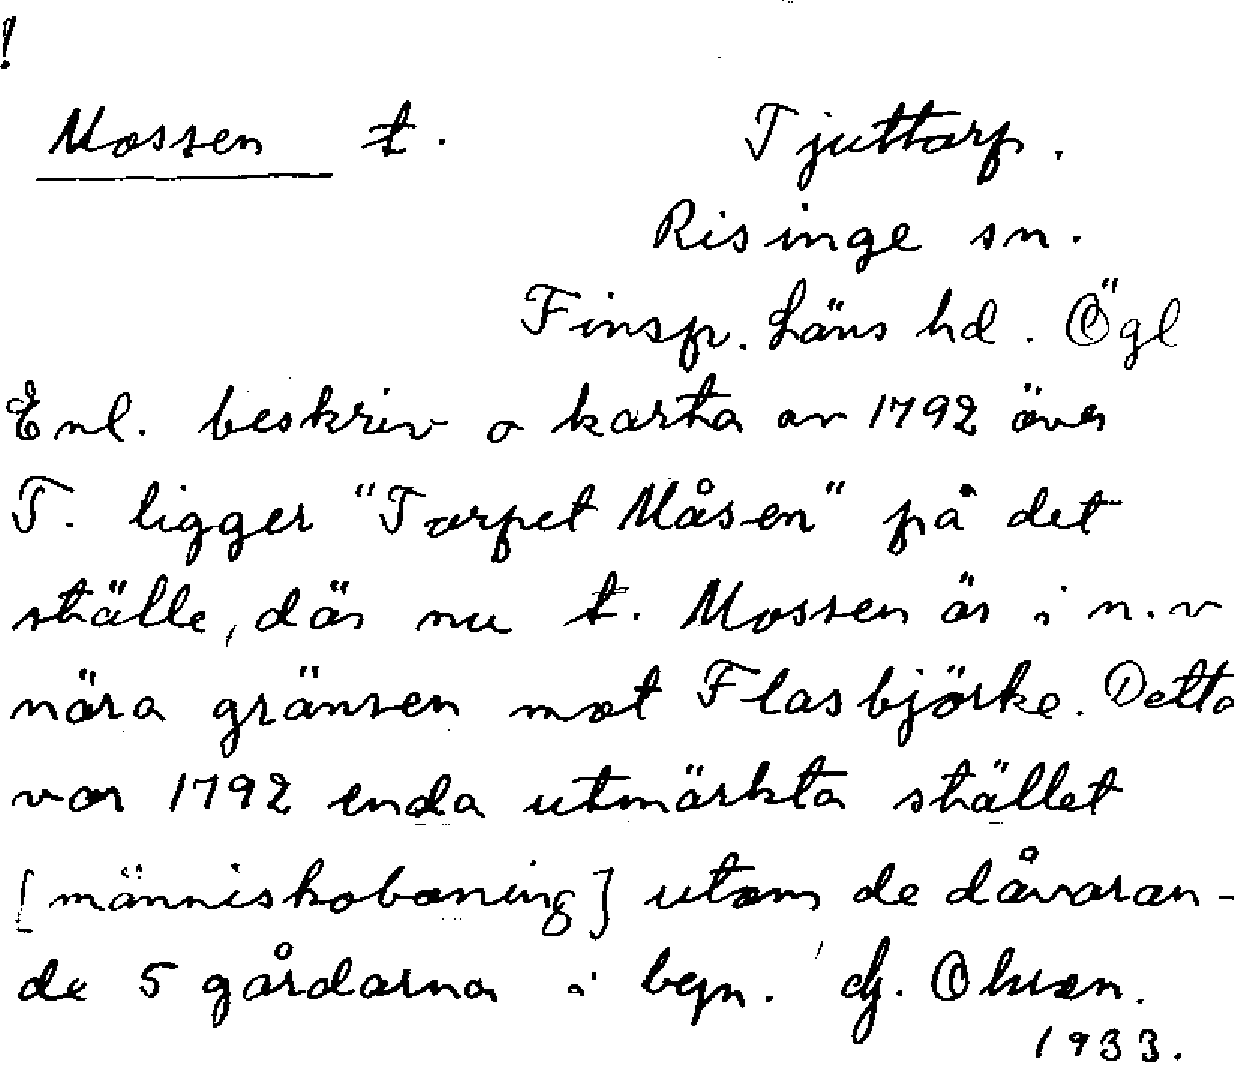 !
Mossen t. Tjuttorp.
Risinge sn.
Finsp. Läns hd. Ögl
Enl. beskriv o karta av 1792 över
T. ligger "Torpet Måsen" på det
ställe, där nu t. Mossen är i n.v
nära gränsen mot Flasbjörke. Detta
var 1792 enda utmärkta stället
[människoboning] utom de dåvaran-
de 5 gårdarna i begn. Ohlson.
1933.